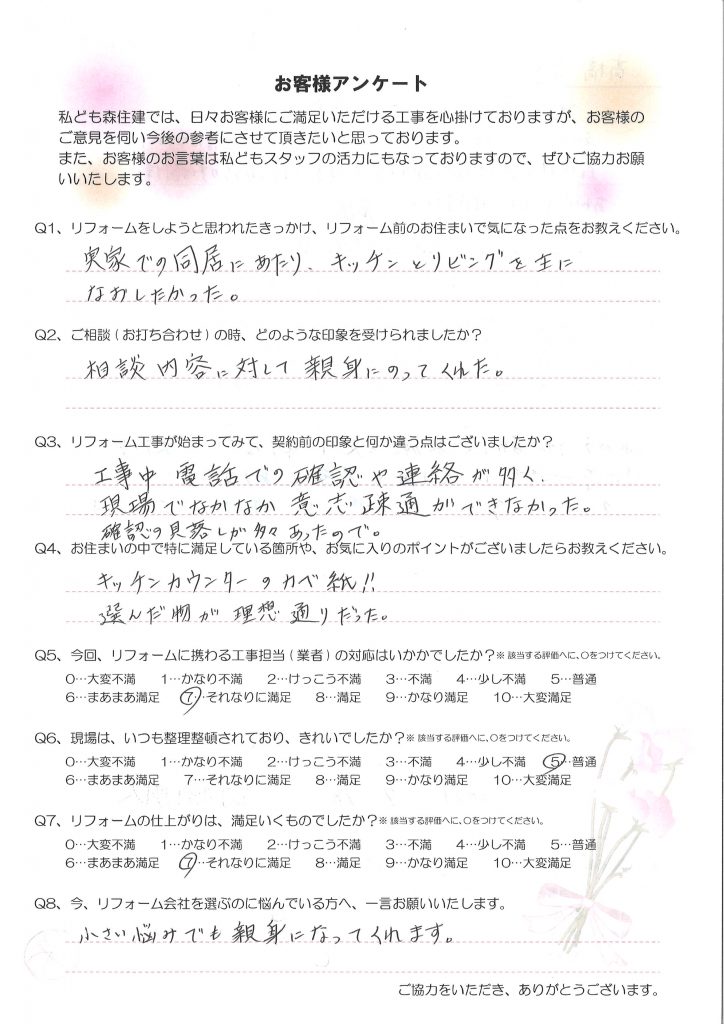 お客様アンケート
私ども森住建では、日々お客様にご満足いただける工事を心掛けておりますが、お客様の
ご意見を伺い今後の参考にさせて頂きたいと思っております。
また、お客様のお言葉は私どもスタッフの活力にもなっておりますので、ぜひご協力お願
いいたします。
Q1、リフォームをしようと思われたきっかけ、リフォーム前のお住まいで気になった点をお教えください。
実家での同居にあたり、キッチンとリビングを主に
なおしたかった。
Q2、ご相談(お打ち合わせ)の時、どのような印象を受けられましたか?
相談内容に対して親身にのってくれた。
Q3、リフォーム工事が始まってみて、契約前の印象と何か違う点はございましたか?
工事中電話での確認や連絡が多く、
現場でなかなか意志疎通ができなかった。
確認の見落しが多々あったので。
Q4、お住まいの中で特に満足している箇所や、お気に入りのポイントがございましたらお教えください。
キッチンカウンターのカベ紙!!
選んだ物が理想通りだった。
Q5、今回、リフォームに携わる工事担当(業者)の対応はいかかでしたか?※該当する評価へに、○をつけてください。
0…大変不満 1…かなり不満 2…けっこう不満 3…不満 4…少し不満 5…普通
6…まあまあ満足 7…それなりに満足 8…満足 9…かなり満足 10…大変満足
Q6、現場は、いつも整理整頓されており、きれいでしたか?※該当する評価へに、○をつけてください。
0…大変不満 1…かなり不満 2…けっこう不満 3…不満 4…少し不満 5…普通
6…まあまあ満足 7…それなりに満足 8…満足 9…かなり満足 10…大変満足
Q7、リフォームの仕上がりは、満足いくものでしたか?※該当する評価へに、○をつけてください。
0…大変不満 1…かなり不満 2…けっこう不満 3…不満 4…少し不満 5…普通
6…まあまあ満足 7…それなりに満足 8…満足 9…かなり満足 10…大変満足
Q8、今、リフォーム会社を選ぶのに悩んでいる方へ、一言お願いいたします。
小さい悩みでも親身になってくれます。
ご協力をいただき、ありがとうございます。